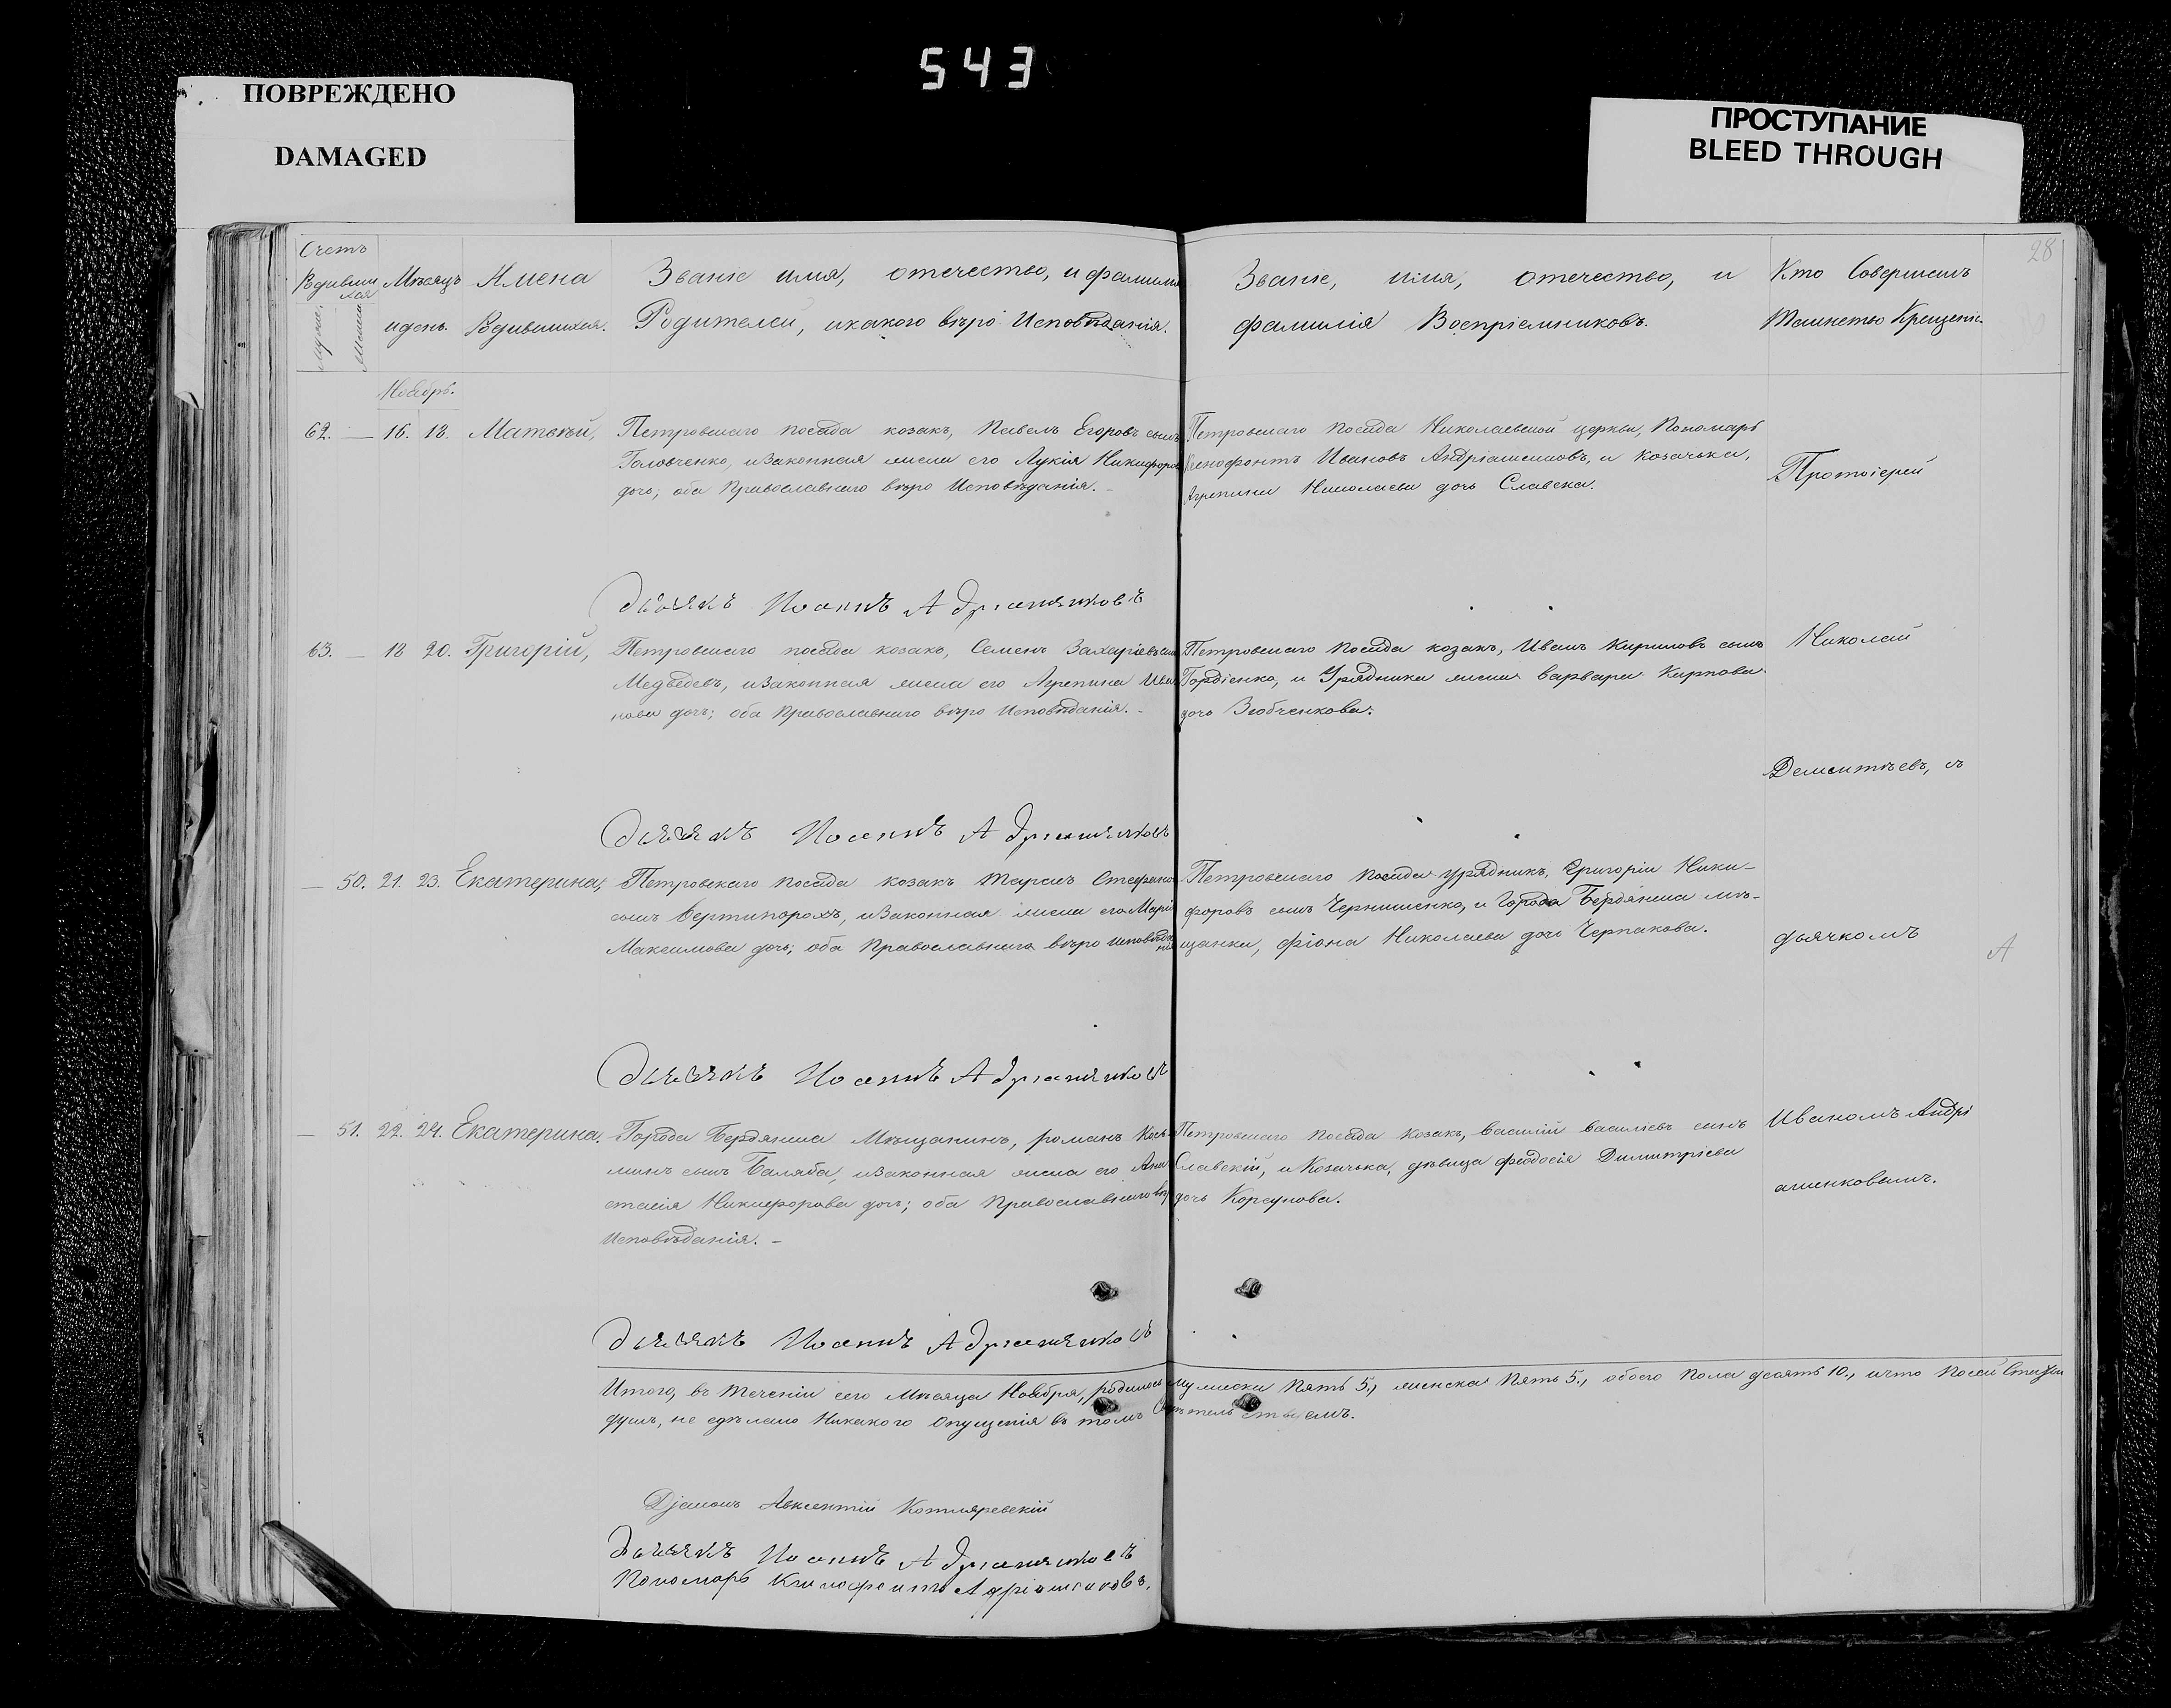 543
ПОВРЕЖДЕНО
DAMAGED
ПРОСТУПАНИЕ
BLEED THROUGH
28
Счетъ
Родивших
ся
Мѣсяцъ
и день.
Имена
Родившихся.
Званіе имя, отечество, и фамилія
Родителей, и какого вѣро Исповѣданія.
Званіе, имя, отечество, и
фамилія Воспріемниковъ.
Кто Совершилъ
Таинство Крещенія
Ноября.
62. — 16. 18. Матвѣй,
Петровскаго посада козакъ, Павелъ Егоровъ сынъ
Головченко, и законная жена его Лукія Никифорова
дочь; оба Православнаго вѣро Исповѣданія. —
Петровскаго посада Николаевской церкви, Пономарь
Ксенофонтъ Ивановъ Андріашенковъ, и козачька,
Агрепина Николаева дочь Славска.
Протоіерей
дьячекъ Иоаннъ Адрианяковъ
63. — 18 20. Григорій,
Петровскаго посада козакъ, Семенъ Захаріевъ сынъ
Медвѣдевъ, и законная жена его Агрепина Ива
нова дочь; оба Православнаго вѣро Исповѣданія. —
Петровскаго посада козакъ, Иванъ Кириловъ сынъ
Гордіенко, и Урядника жена Варвара Карпова
дочь Зюбченкова.
Николай
Дементьевъ, съ
дьячекъ Иоаннъ Адрианяковъ
— 50. 21. 23. Екатерина,
Петровскаго посада козакъ Тарасъ Стефановъ
сынъ Вертипорохъ, и законная жена его Марія
Максимова дочь; оба Православнаго вѣро исповѣда
нія
Петровскаго посада урядникъ, Григорій Ники-
форовъ сынъ Чернишенко, и Города Бердянска мѣ-
щанка, Фіона Николаева дочь Черпакова.
дьячкомъ
А
дьячекъ Иоаннъ Адрианяковъ
— 51. 22. 24. Екатерина.
Города Бердянска Мѣщанинъ, романъ Козь
минъ сынъ Баляба, и законная жена его Ана
стасія Никифорова дочь; оба Православнаго вѣр
Исповѣданія. —
Петровскаго посада козакъ, Василій Василіевъ сынъ
Славскій, и Козачька, дѣвица Феодосія Димитріева
дочь Корсунова.
Иваномъ Андрі
ашенковымъ.
дьячекъ Иоаннъ Адрианяковъ
Итого, въ теченіи сего Мѣсяца Ноября, родилось мужеска пять 5., женска пять 5., обоего пола десять 10., и что посей
душъ, не сдѣлано Никакого опущенія въ томъ Свидѣтельствуемъ.
Діаконъ Авксентій Котляревскій
дьячекъ Иоаннъ Адрианяковъ
Пономарь Ксенофонтъ Адріашенковъ.